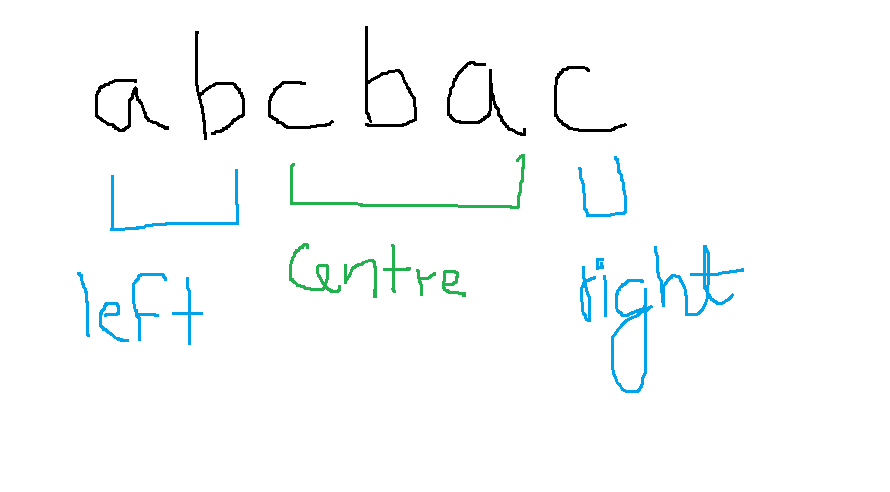 abcbac
left centre right